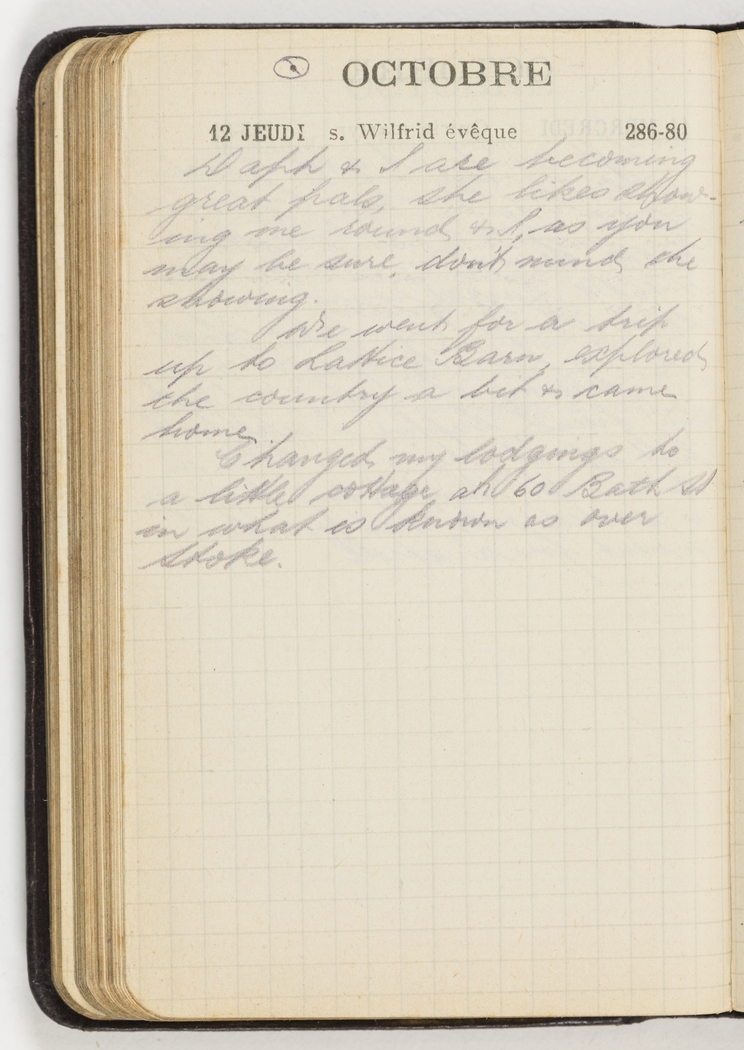 OCTOBRE
12 JEUDI s. Wilfrid évêque 286-80
Daph & I are becoming
great pals, she likes show-
ing me round, & I, as you
may be sure, don't mind she
showing.
We went for a trip
up to Lattice Barn, explored
the country a bit & came
home.
Changed my lodgings to
a little cottage at 60 Bath St
in what is known as over
Stoke.